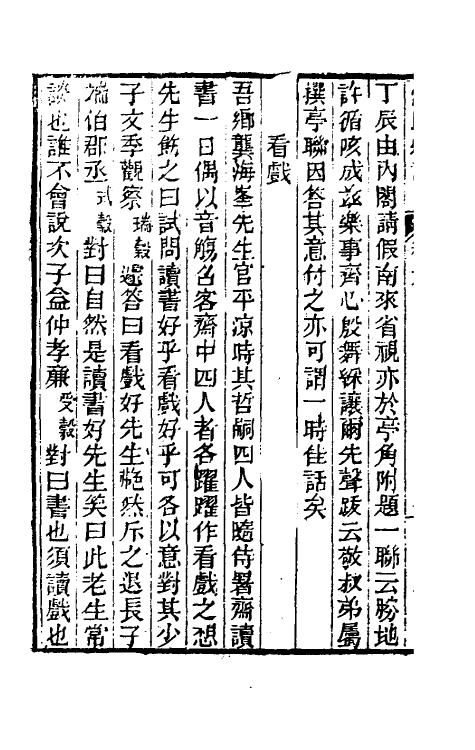 丁辰由內閣請假南來省視亦於亭角附題一聯云勝地
許循咳成茲樂事齊心殷舞綵讓爾先聲跋云敬叔弟屬
撰亭聯因答其意付之亦可謂一時佳話矣
看戲
吾鄉龔海峯先生官平涼時其哲嗣四人皆隨侍署齋讀
書一日偶以音觴召客齋中四人者各躍躍作看戲之想
先生飭之曰試問讀書好乎看戲好乎可各以意對其少
子文季觀察瑞穀遽答曰看戲好先生艴然斥之退長子
端伯郡丞式穀對曰自然是讀書好先生笑曰此老生常
談也誰不會說次子益仲孝廉受穀對曰書也須讀戲也